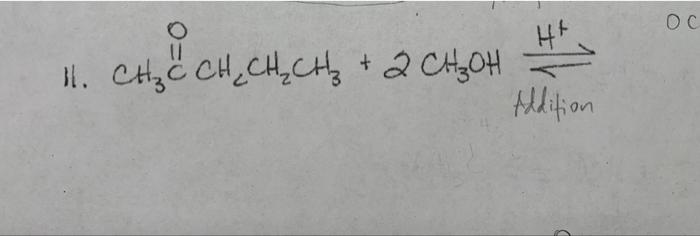 O
||
11. CH₃C CH₂CH₂CH₃ + 2 CH₃OH H⁺ ⇌
Addition
OC